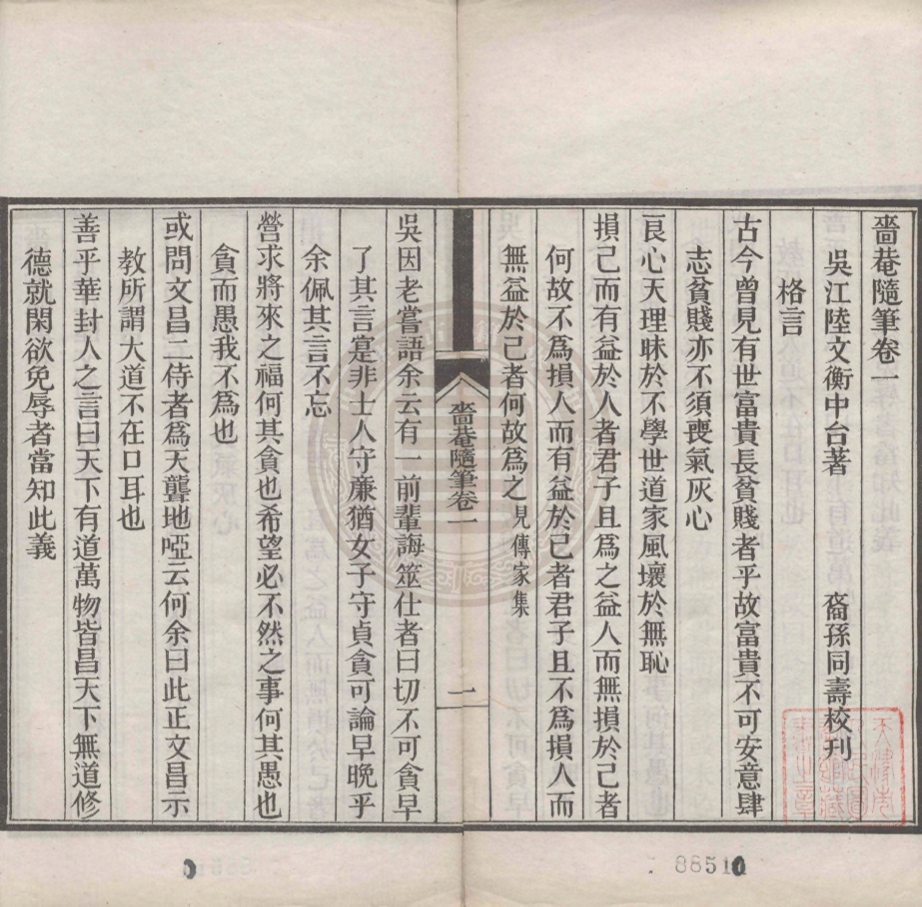 嗇菴隨筆卷一
吳江陸文衡中台著 裔孫同壽校刊
格言
古今曾見有世富貴長貧賤者乎故富貴不可安意肆
志貧賤亦不須喪氣灰心
良心天理昧於不學世道家風壞於無恥
損己而有益於人者君子且為之益人而無損於己者
何故不為損人而有益於己者君子且不為損人而
無益於己者何故為之見傳家集
嗇菴隨筆卷一 一
吳因老嘗語余云有一前輩誨筮仕者曰切不可貪早
了其言寔非士人守廉猶女子守貞貪可論早晚乎
余佩其言不忘
營求將來之福何其貪也希望必不然之事何其愚也
貪而愚我不為也
或問文昌二侍者為天聾地啞云何余曰此正文昌示
教所謂大道不在口耳也
善乎華封人之言曰天下有道萬物皆昌天下無道修
德就閑欲免辱者當知此義